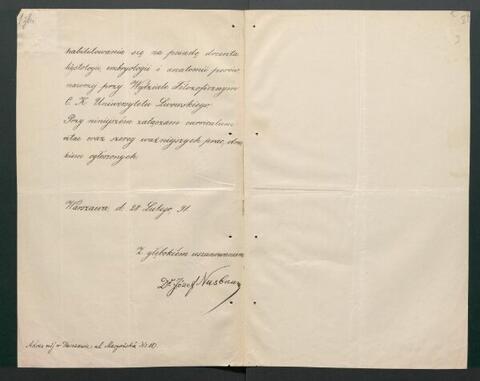 habilitowania się na posadę docenta
histologii, embryologii i anatomii porów
nawczej przy Wydziale Filozoficznym
C. K. Uniwersytetu Lwowskiego.
Przy niniejszem załączam curriculum
vitae oraz szereg ważniejszych prac, dru
kiem ogłoszonych.
Warszawa, d. 28 Lutego, 91.
Z głębokiem uszanowaniem
Dr. Józef Nusbaum
Adres mój w Warszawie: ul.